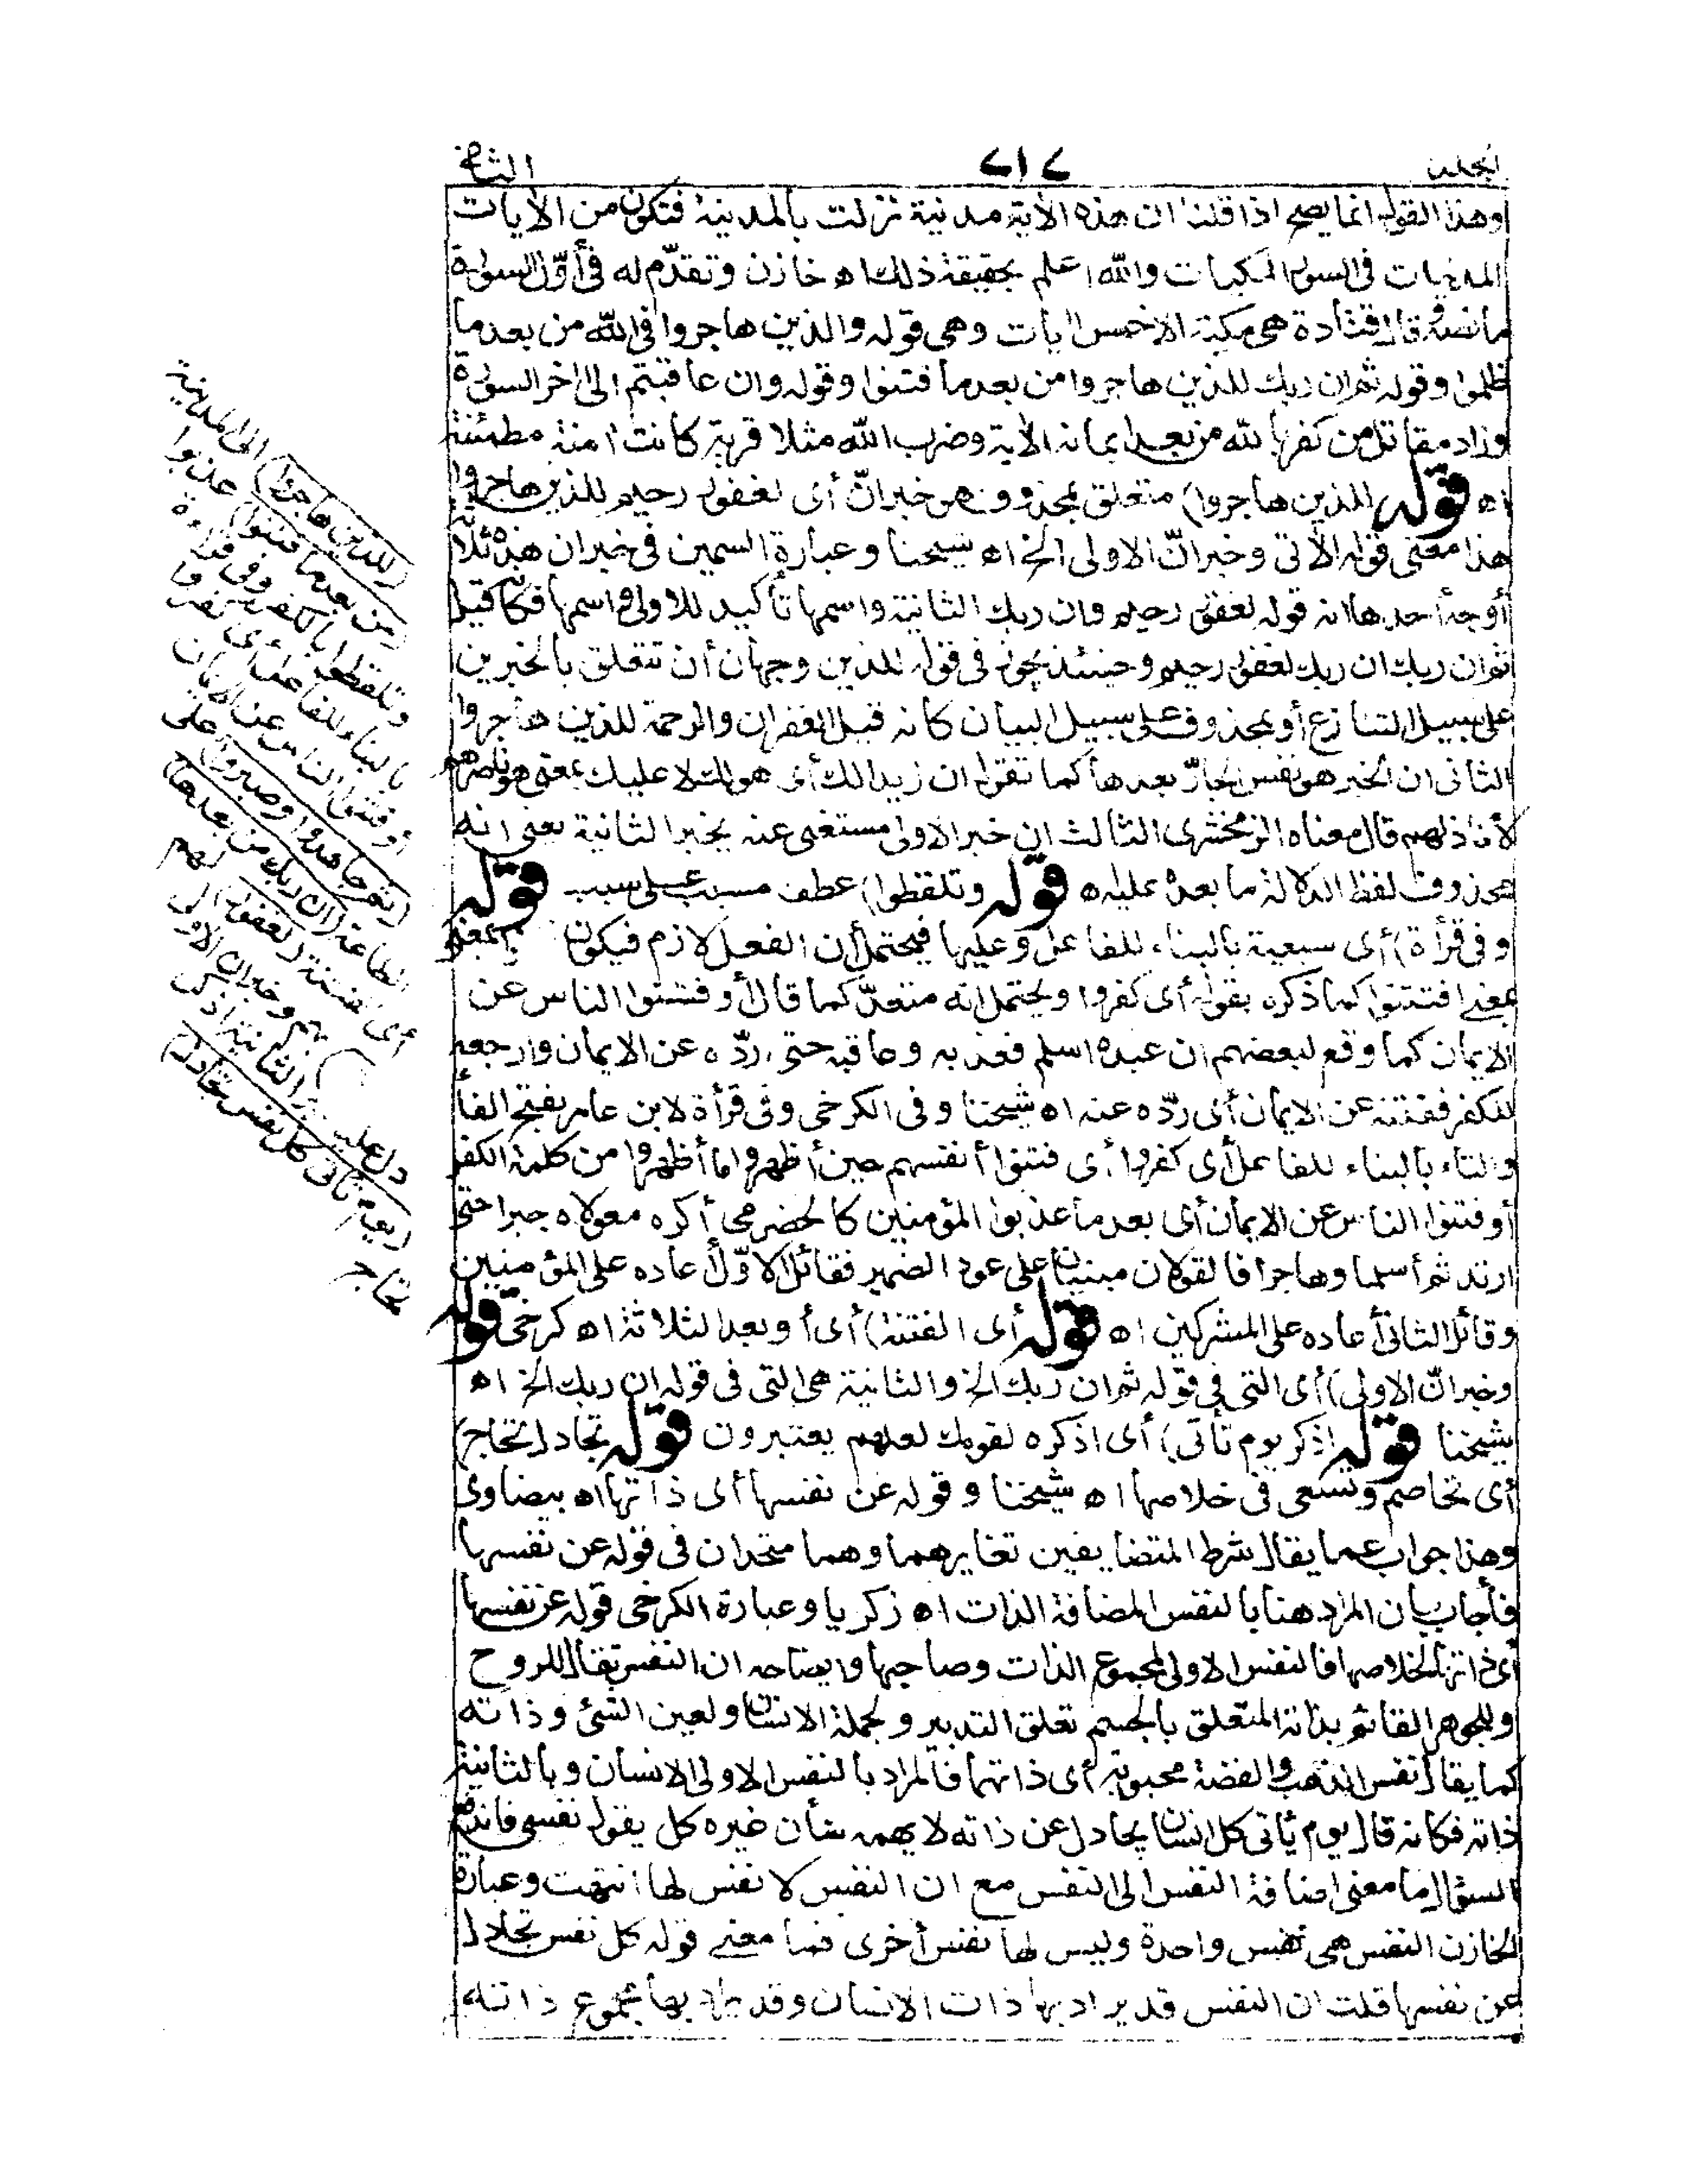 المجلد ٧١٧ الثانى
وهذا القول انما يصح اذا قلنا ان هذه الآية مدنية نزلت بالمدينة فتكون من الآيات
المدنيات فى السور المكيات والله اعلم بحقيقة ذلك اه خازن وتقدّم له فى أوّل السورة
ما نصه قال قتادة هى مكية الا خمس آيات وهى قوله والذين هاجروا فى الله من بعد ما
ظلموا وقوله ثم ان ربك للذين هاجروا من بعد ما فتنوا وقوله وان عاقبتم الى اخر السورة
وزاد مقاتل من كفر بالله من بعد ايمانه الآية وضرب الله مثلا قرية كانت امنة مطمئنة
اه قوله للذين هاجروا) متعلق بمحذوف هو خبر انّ أى لغفور رحيم للذين هاجروا
هذا معنى قوله الآتى وخبر انّ الاولى الخ اه شيخنا وعبارة السمين فى خبر ان هذه ثلاثة
أوجه أحدها انه قوله لغفور رحيم وان ربك الثانية واسمها تأكيد للاولى واسمها فكأنه قيل
ثم ان ربك ان ربك لغفور رحيم وحينئذ يجوز فى قوله للذين وجهان أن تتعلق بالخبرين
على سبيل التنازع أو بمحذوف على سبيل البيان كانه قيل الغفران والرحمة للذين هاجروا
الثانى ان الخبر هو نفس الجارّ بعدها كما تقول ان زيدا لك أى هو لك لا عليك بمعنى هو ناصرهم
لا خاذلهم قال معناه الزمخشرى الثالث ان خبر الاولى مستغنى عنه بخبر الثانية يعنى انه
محذوف لفظا لدلالة ما بعده عليه اه قوله وتلفظوا) عطف مسبب على سبب قوله
وفى قرأة) أى سبعية بالبناء للفاعل وعليها فيحتمل أن الفعل لازم فيكون
بمعنى افتتنوا كما ذكره بقوله أى كفروا ويحتمل انه متعدّ كما قال أو فتنوا الناس عن
الايمان كما وقع لبعضهم ان عبده اسلم فعذبه وعاقبه حتى ردّه عن الايمان وارجعه
للكفر ففتنه عن الايمان أى ردّه عنه اه شيخنا وفى الكرخى وفى قرأة لابن عامر بفتح الفأ
والتاء بالبناء للفاعل أى كفروا أى فتنوا أنفسهم حين أظهروا ما أظهروا من كلمة الكفر
أو فتنوا الناس عن الايمان أى بعد ما عذبوا المؤمنين كالحضرمى أكره مولاه جبرا حتى
ارتد ثم أسلما وهاجرا فالقولان مبنيان على عود الضمير فقائل الاوّل أعاده على المؤمنين
وقائل الثانى أعاده على المشركين اه قوله أى الفتنة) أى أو بعد الثلاثة اه كرخى قوله
وخبر انّ الاولى) أى التى فى قوله ثم ان ربك الخ والثانية هى التى فى قوله ان ربك الخ اه
شيخنا قوله اذكر يوم تأتى) أى اذكره لقومك لعلهم يعتبرون قوله تجادل تحاج)
أى تخاصم وتسعى فى خلاصها اه شيخنا وقوله عن نفسها أى ذاتها اه بيضاوى
وهذا جواب عما يقال شرط المتضايفين تغايرهما وهما متحدان فى قوله عن نفسها
فأجاب بان المراد هنا بالنفس المضافة الذات اه زكريا وعبارة الكرخى قوله عن نفسها
أى ذاتها لخلاصها فالنفس الاولى لمجموع الذات وصاحبها وايضاحه ان النفس تقال للروح
وللجوهر القائم بذاته المتعلق بالجسم تعلق التدبير ولجملة الانسان ولعين الشئ وذاته
كما يقال نفس الذهب والفضة محبوبة أى ذاتهما فالمراد بالنفس الاولى الانسان وبالثانية
ذاته فكانه قال يوم يأتى كل انسان يجادل عن ذاته لا يهمه شأن غيره كل يقول نفسى فاندفع
السؤال ما معنى اضافة النفس الى النفس مع ان النفس لا نفس لها انتهت وعبارة
الخازن النفس هى نفس واحدة وليس لها نفس أخرى فما معنى قوله كل نفس تجادل
عن نفسها قلت ان النفس قد يراد بها ذات الانسان وقد يراد بها مجموع ذاته
(للذين هاجروا) الى المدينة
(من بعد ما فتنوا) عذبوا
وتلفظوا بالكفر وفى قراءة
بالبناء للفاعل أى كفروا
أو فتنوا الناس عن الايمان
(ثم جاهدوا وصبروا) على
الطاعة (ان ربك من بعدها)
أى الفتنة (لغفور) لهم
بهم وخبر ان الاولى
دل عليه خبر الثانية اذكر
(يوم تأتى كل نفس تجادل)
تحاج